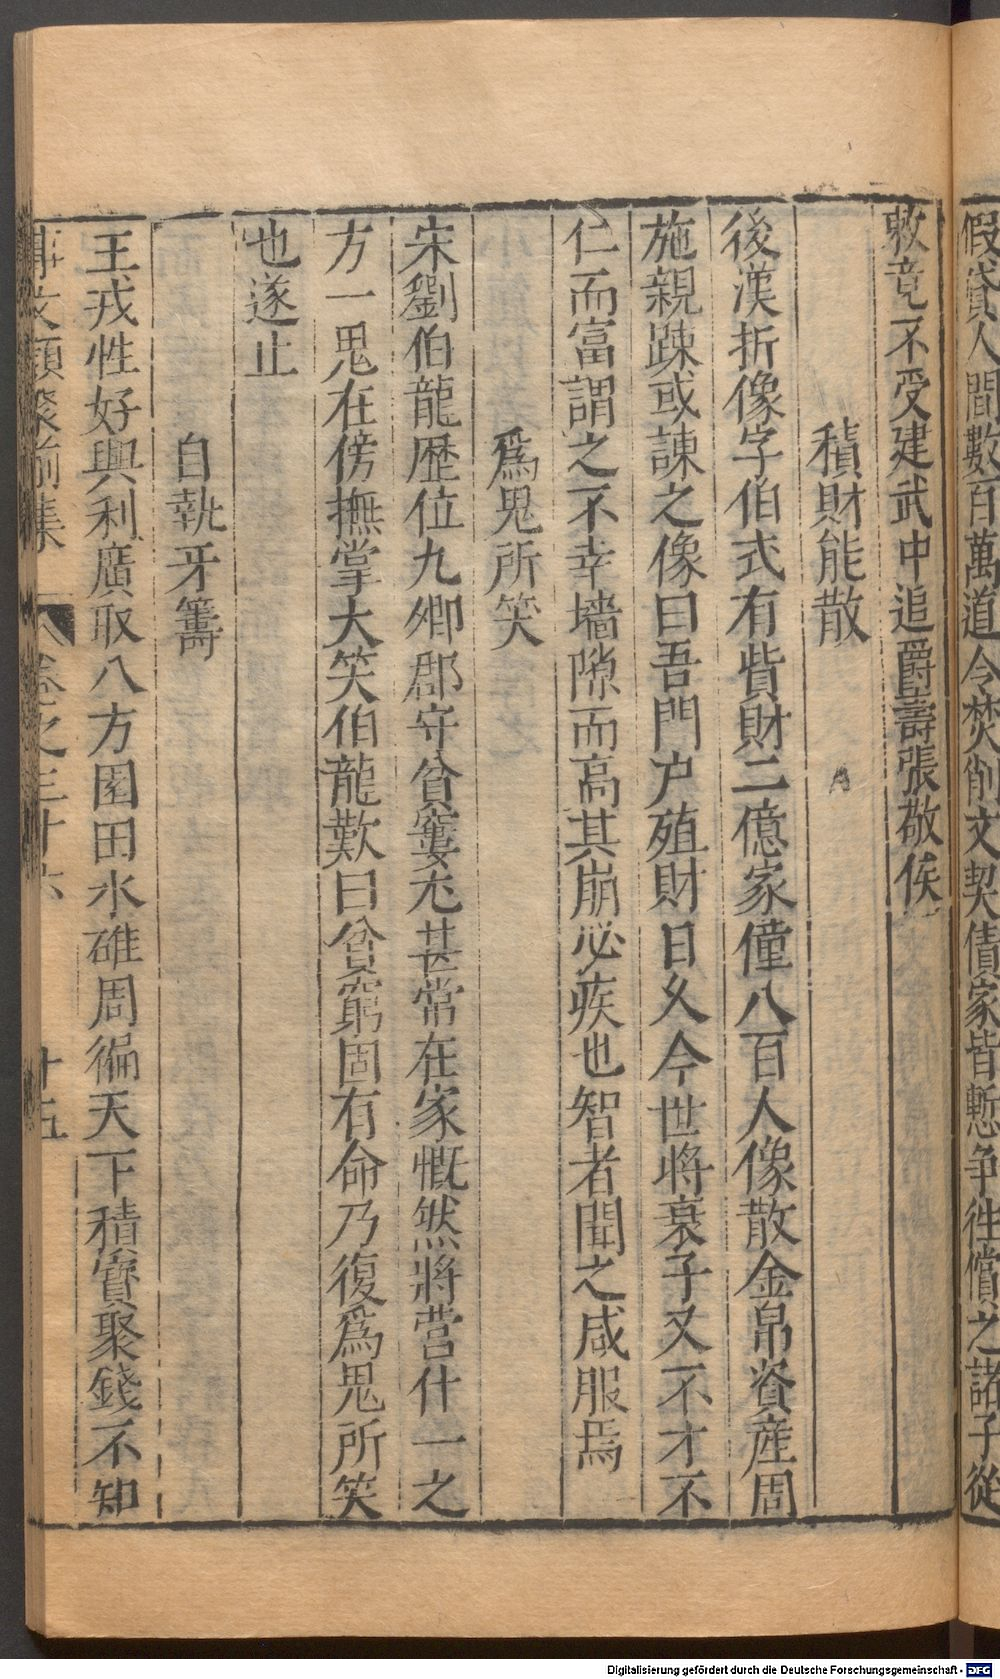 假貸人間數百萬道令焚削文契債家皆慙争往償之諸子從
敕竟不受建武中追爵壽張敬侯
積財能散
後漢折像字伯式有貲財二億家僮八百人像散金帛資産周
施親踈或諌之像曰吾門户殖財日久今世將衰子又不才不
仁而富謂之不幸墻隙而高其崩必疾也智者聞之咸服焉
爲鬼所笑
宋劉伯龍歴位九卿郡守貧窶尤甚常在家慨然將营什一之
方一鬼在傍撫掌大笑伯龍歎曰貧窮固有命乃復爲鬼所笑
也遂止
自執牙籌
王戎性好興利廣取八方園田水碓周徧天下積實聚錢不知
事文類聚前集 卷之三十六 十五
Digitalisierung gefördert durch die Deutsche Forschungsgemeinschaft - DFG